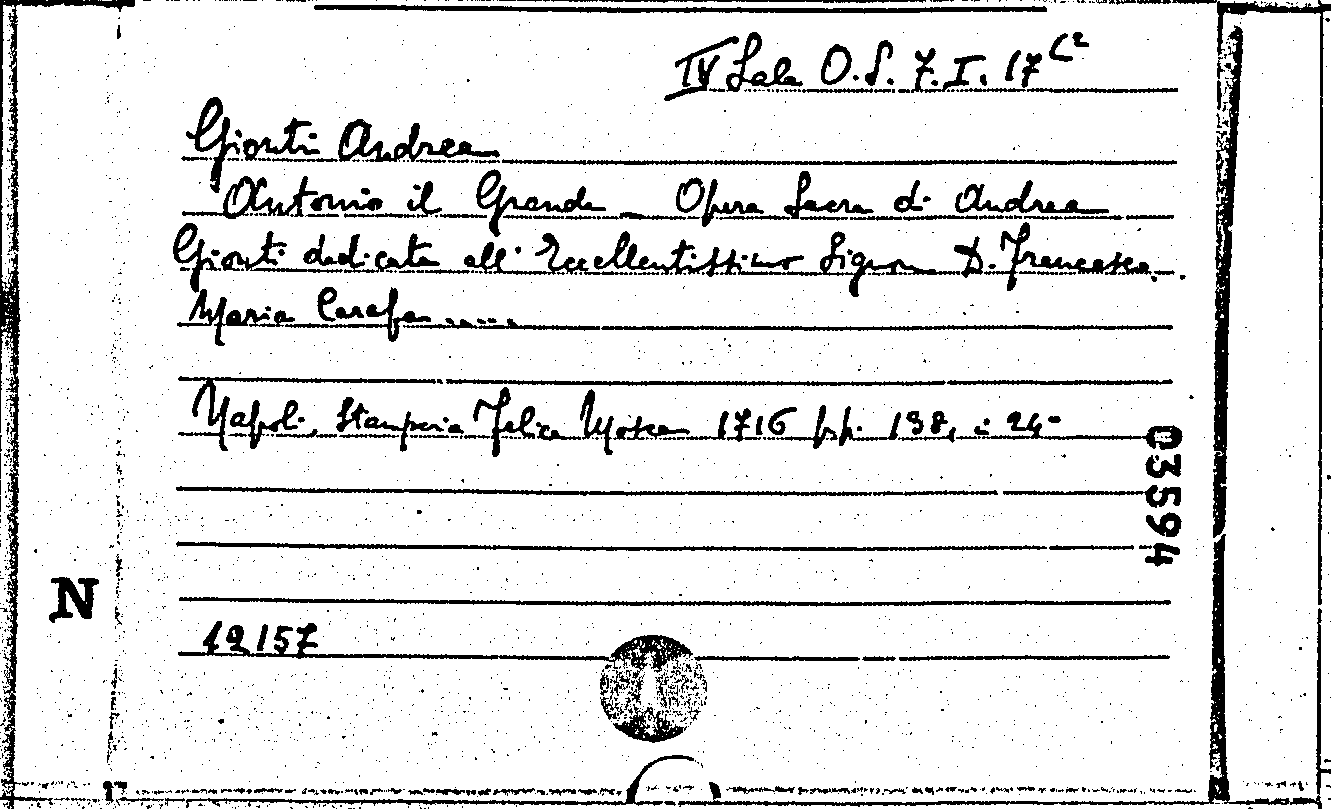 IV Sala O.S. 7.I.17 C²
Gionti Andrea
Antonio il Grande - Opera Sacra di Andrea
Gionti dedicata all'Eccellentissimo Signore D. Francesco
Maria Carafa .....
Napoli, Stamperia Felice Mosca 1716 pp. 138, i 24°
03594
N
12157